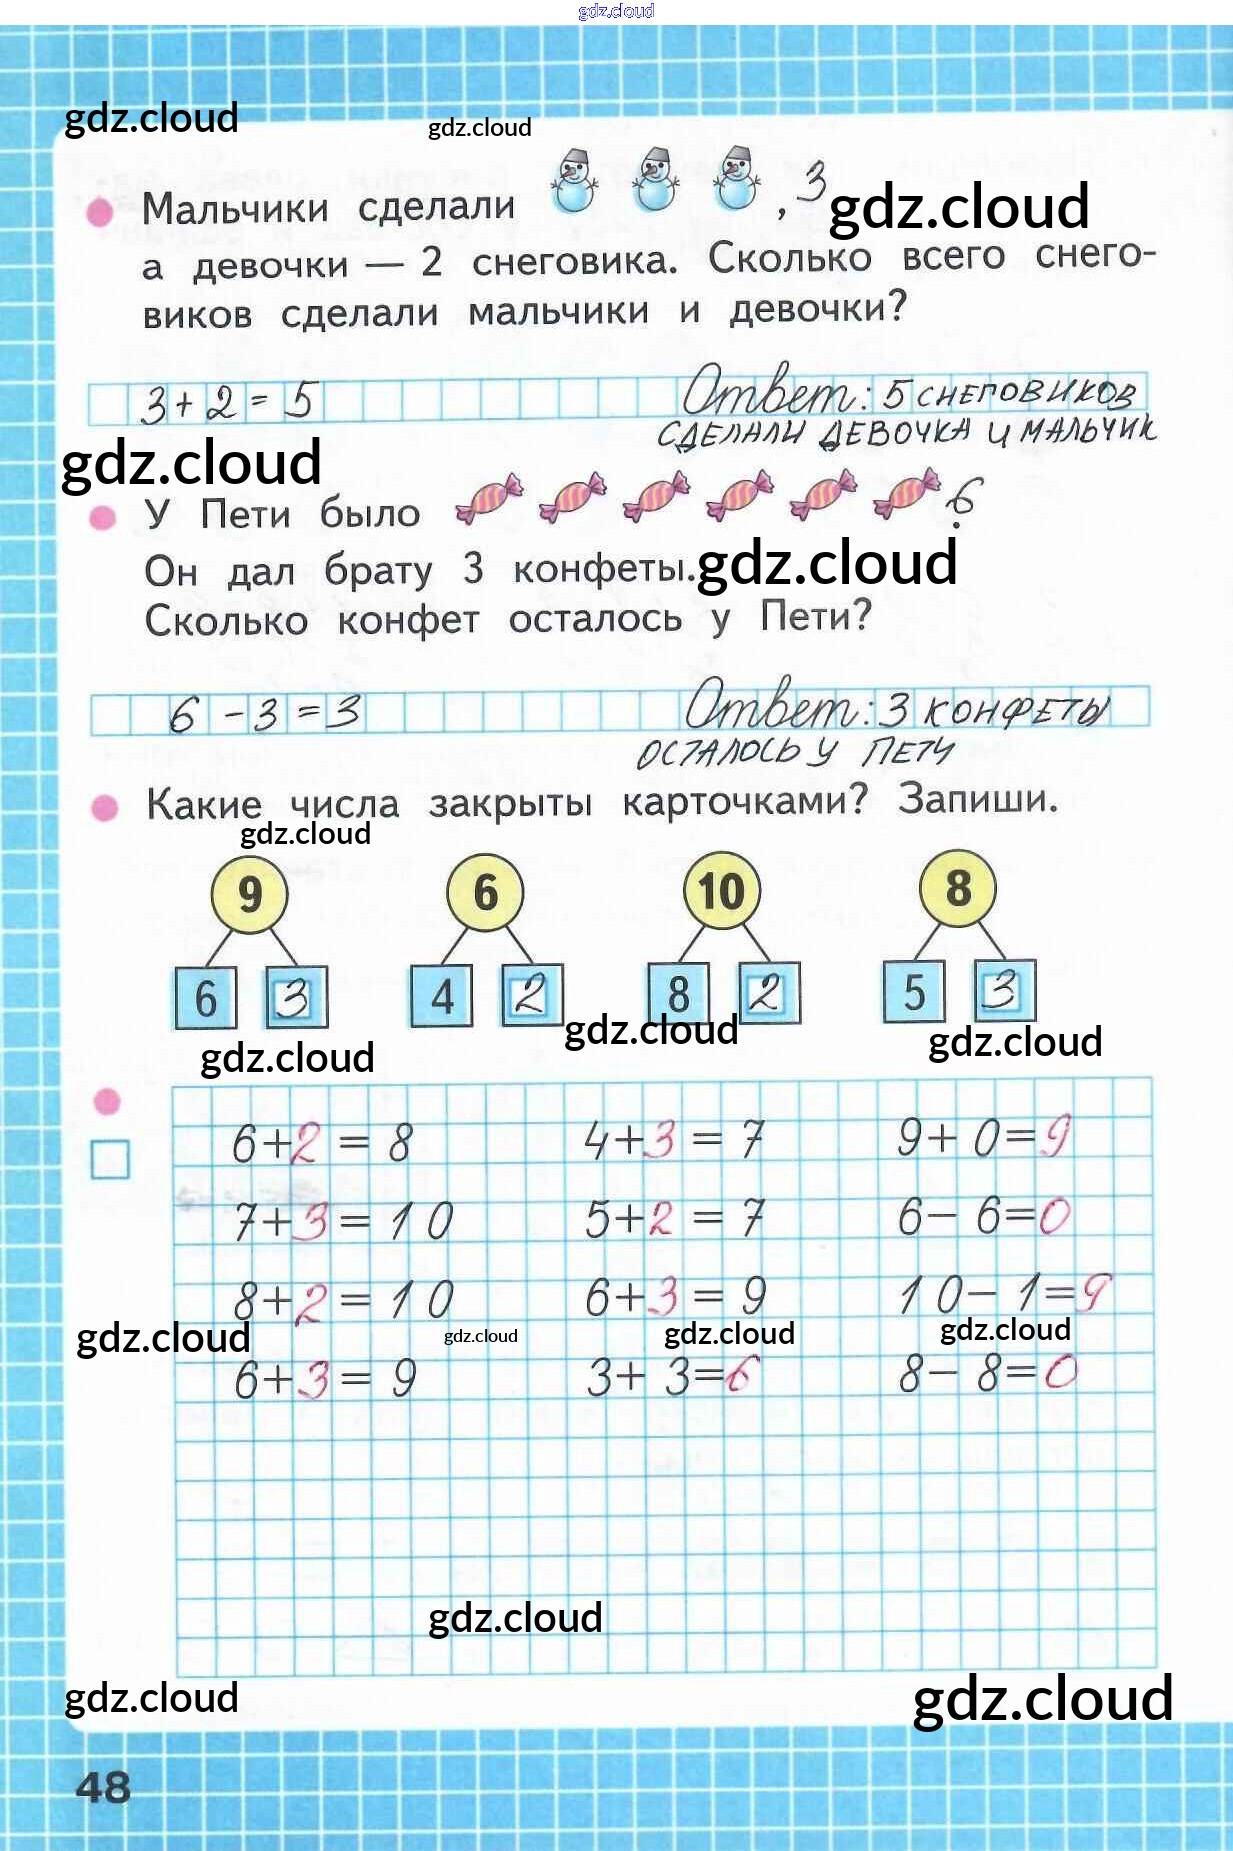 gdz.cloud
gdz.cloud
gdz.cloud
Мальчики сделали , 3
gdz.cloud
а девочки — 2 снеговика. Сколько всего снего-
виков сделали мальчики и девочки?
3+2=5 Ответ: 5 СНЕГОВИКОВ
СДЕЛАЛИ ДЕВОЧКА И МАЛЬЧИК
gdz.cloud
У Пети было 6.
Он дал брату 3 конфеты.
gdz.cloud
Сколько конфет осталось у Пети?
6-3=3 Ответ: 3 КОНФЕТЫ
ОСТАЛОСЬ У ПЕТИ
Какие числа закрыты карточками? Запиши.
gdz.cloud
9 6 10 8
6 3 4 2 8 2 5 3
gdz.cloud gdz.cloud gdz.cloud
6+2=8 4+3=7 9+0=9
7+3=10 5+2=7 6-6=0
8+2=10 6+3=9 10-1=9
gdz.cloud gdz.cloud gdz.cloud gdz.cloud
6+3=9 3+3=6 8-8=0
gdz.cloud
gdz.cloud gdz.cloud
48